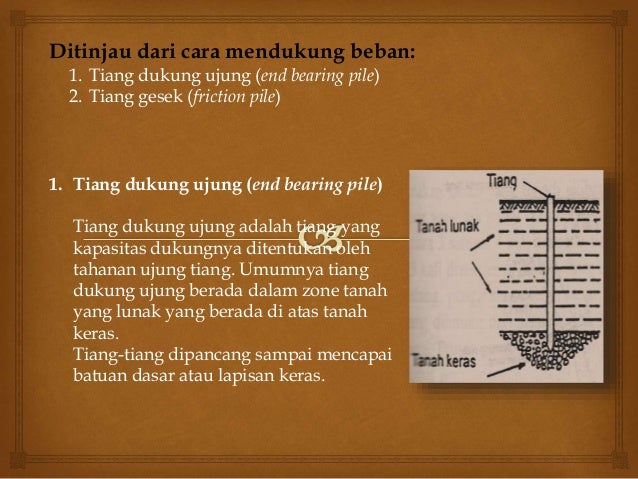 Ditinjau dari cara mendukung beban:
1. Tiang dukung ujung (end bearing pile)
2. Tiang gesek (friction pile)
1. Tiang dukung ujung (end bearing pile)
Tiang dukung ujung adalah tiang yang
kapasitas dukungnya ditentukan oleh
tahanan ujung tiang. Umumnya tiang
dukung ujung berada dalam zone tanah
yang lunak yang berada di atas tanah
keras.
Tiang-tiang dipancang sampai mencapai
batuan dasar atau lapisan keras.
Tiang
Tanah lunak
Tanah keras